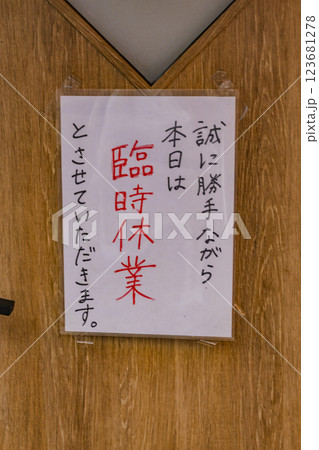 誠に勝手ながら
本日は
臨時休業
とさせていただきます。
PIXTA
123681278